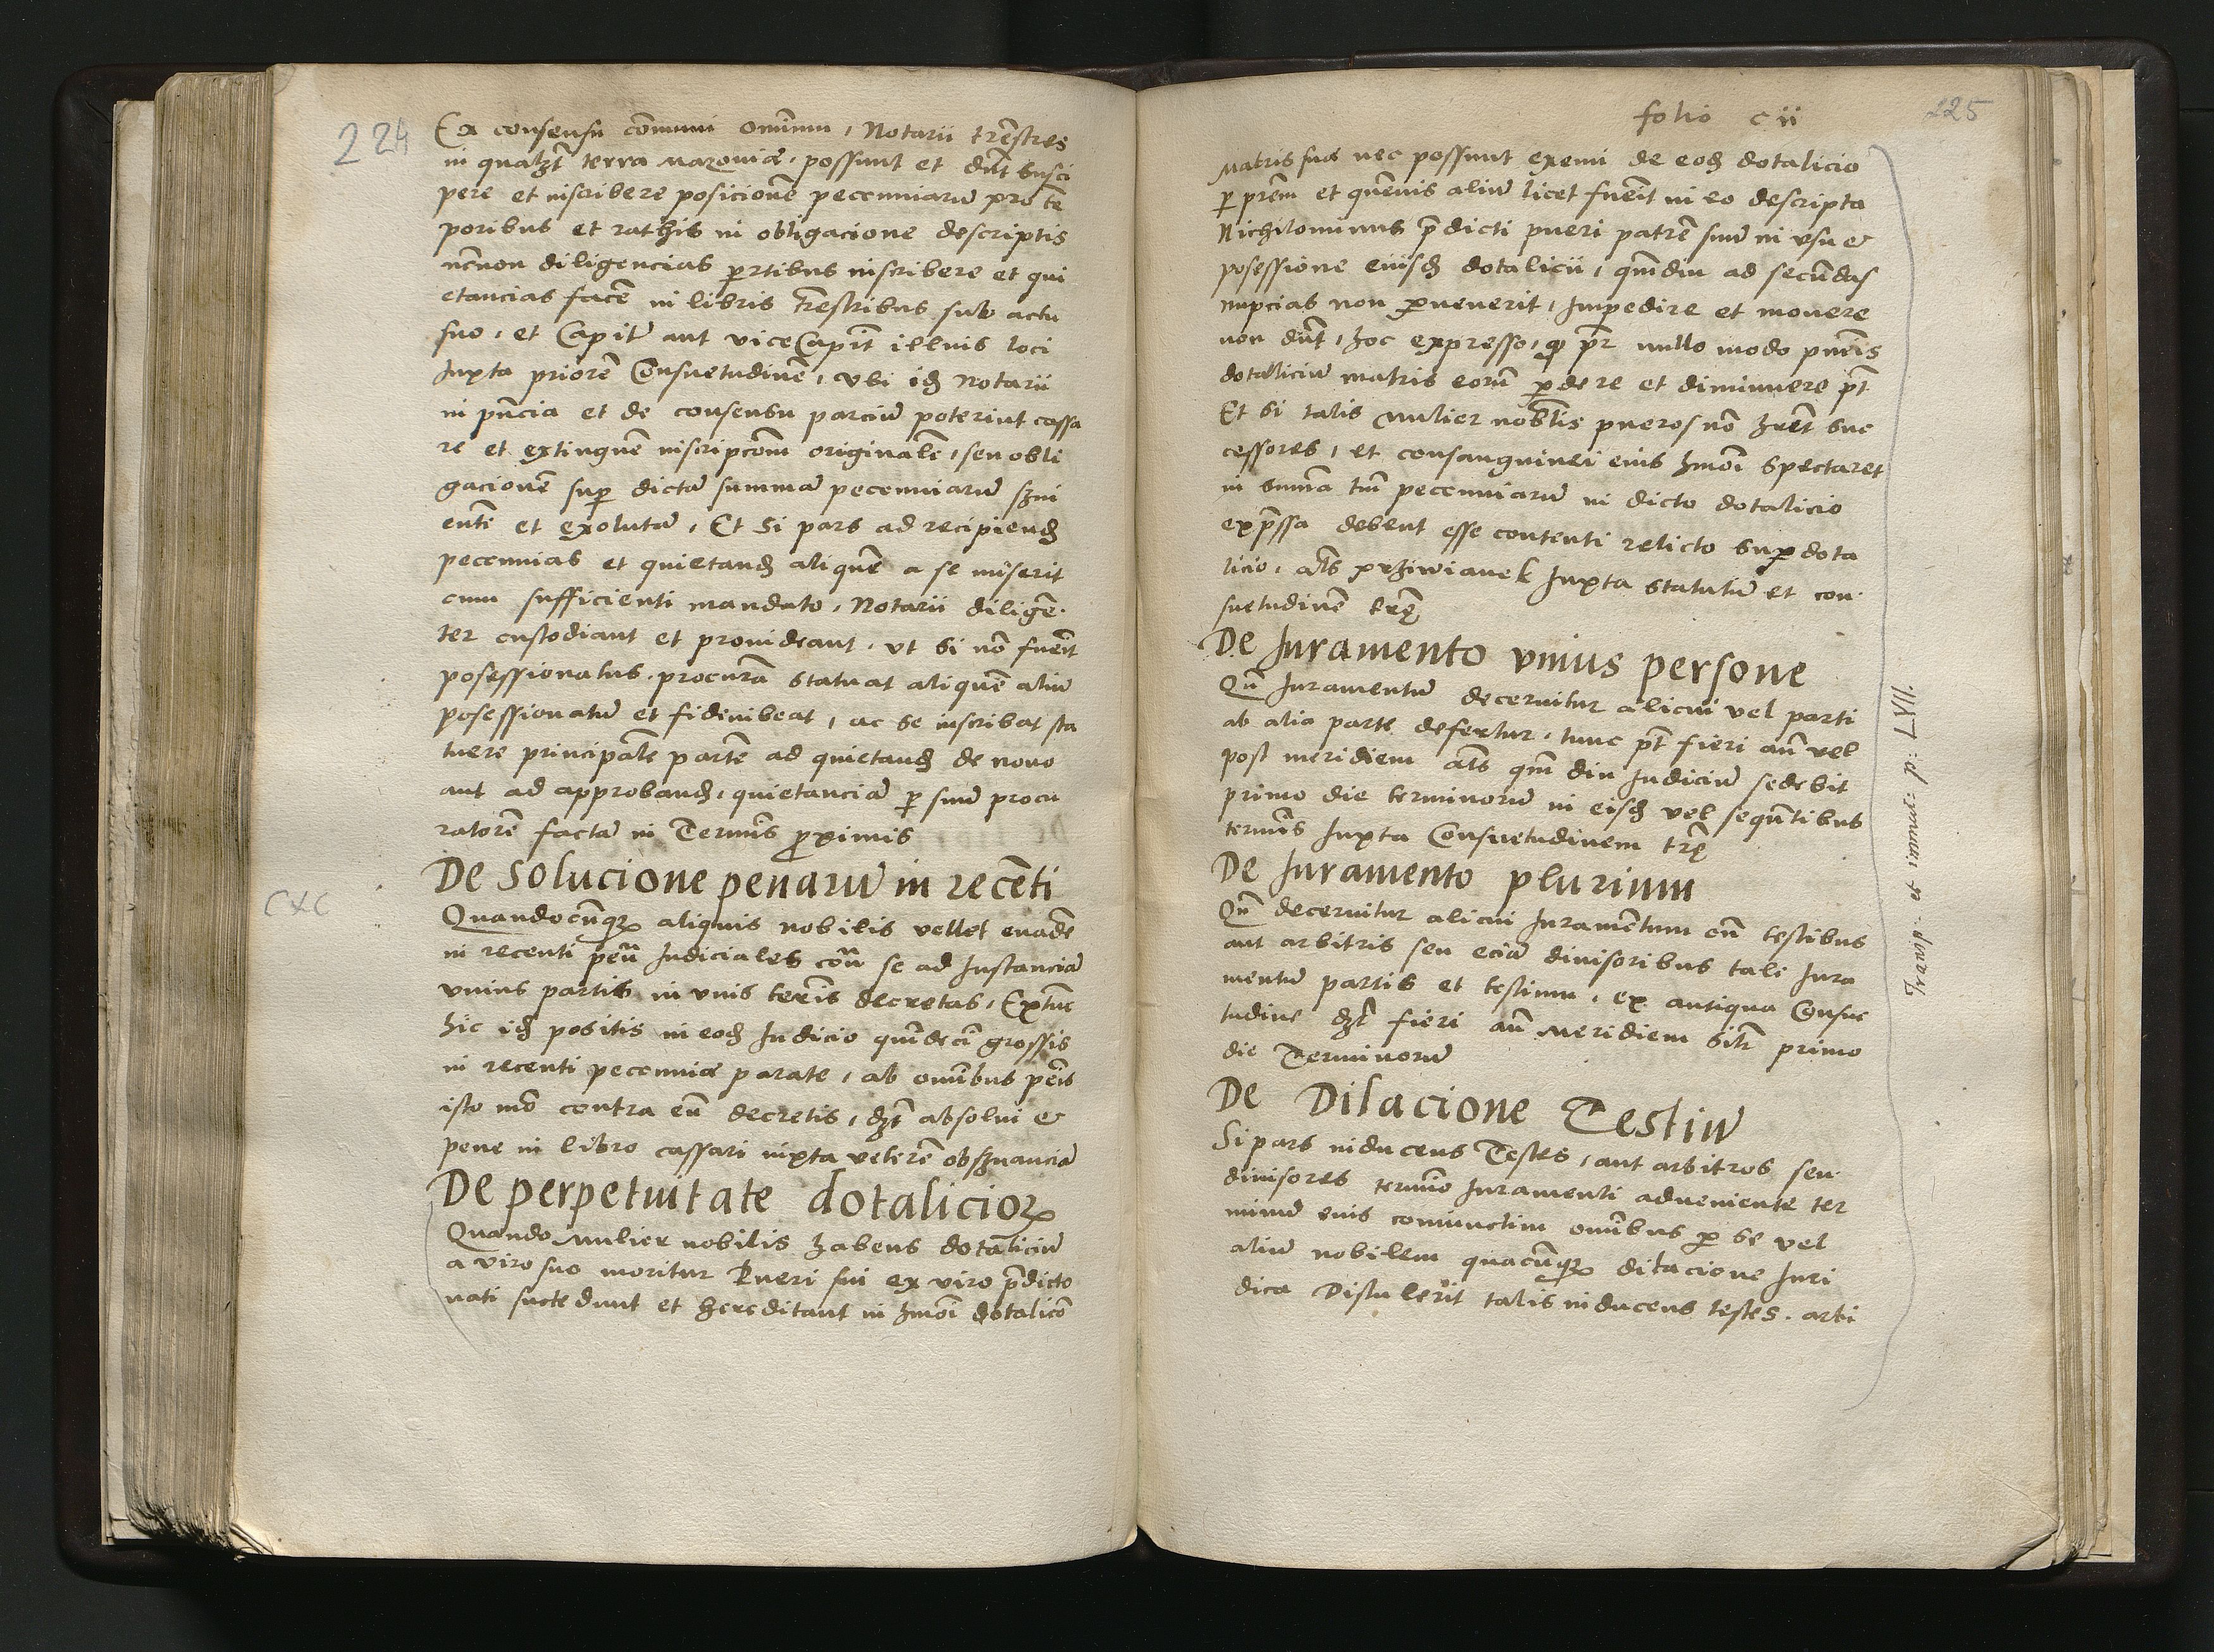 224
Ex consensu cōmuni oīnium, Notarii trēstres
in qualzt terra Mazoviæ, possunt et dnt susci
pere et inscribere posicionē pecenniarū pro tē
poribus et rathis in obligacione descriptis
ncnon diligencias partibus inscribere et qui
etancias facē in libris trestribus sub actu
suo, et Capit aut viceCapit illius loci
Juxta priorē Consuetudinē, vbi idē Notarii
in pncia et de consensu parciū poterint cassa
re et extinguē inscripcōm originalē, seu obli
gacionē sup dictā summā pecenniarū
entē et exolutā, Et si pars ad recipiend
pecennias et quietand aliquē a se miserit
cum sufficienti mandato, Notarii diligē
ter custodiant et provideant, vt si nō fuerit
posessionatus, procurā statuat aliquē aliū
posessionatū et fideiubeat, ac se inscribat sta
tuere principalē partē ad quietand de novo
aut ad approband, quietanciā p suū procu
ratorē factā in Termis proximis
De Solucione penarū in recēti
CXC
Quandocūq aliquis nobilis vellet evadē
in recenti penā Judiciales cōū se ad Instanciā
vnius partis in vnis termis decretas, Extunc
hic idē positis in eod Judicio quīdeci grossis
in recenti pecennia parate, ab omībus penis
isto mō contra eū decretis, dzt absolui et
pene in libro cassari iuxta veterē obsvanciā
De perpetuitate dotalicior
Quando Mulier nobilis habens dotaliciū
a viro suo moritur Pueri sui ex viro pdicto
nati succedunt et hereditant in hmoi dotalicō
folio cii
225
Matris suæ nec possunt exemi de eod dotalicio
p prēm et quemuis aliū licet fuerit in eo descripta
Nichilominus pdicti pueri patrē suū in vsu et
posessione eiusd dotalicii, qmdiu ad secūdas
nupcias non pvenerit, Impedire et movere
non dnt, hoc expresso, q pr nullo modo pueris
dotaliciū matris eorū pdere et diminuere pt
Et si talis Mulier nobilis pueros nō hret suc
cessores, et consanguinei eius hmoi spectaret
in summa tm pecenniarū in dicto dotalicio
expssa debent esse contenti relicto sup dota
licio, als przhiwianek Juxta statutū et con
suetudinē trę
De Juramento vnius persone
Qn Juramentū decernitur alicui vel parti
ab alia parte defertur, tunc pt fieri an vel
post meridiem als qm diu Judiciū sedebit
primo die terminorū in eisd vel sequntibus
termis Juxta Consuetudinem trę
De Juramento plurium
Qn decernitur alicui Juramentum cū testibus
aut arbitris seu eciā diuisoribus tali Jura
mentū partis et testium, ex antiqua Consue
tudine dzt fieri an Meridiem sitr primo
die Terminorū
De Dilacione Testiū
Si pars inducens Testes, aut arbitros seu
diuisores termio Juramenti adveniente ter
minū euis coniunctim omībus p se vel
aliū nobilem quacūq dilacione Juri
dica Distulerit talis inducens testes, arbi
Transp: et immut: p: LVII.